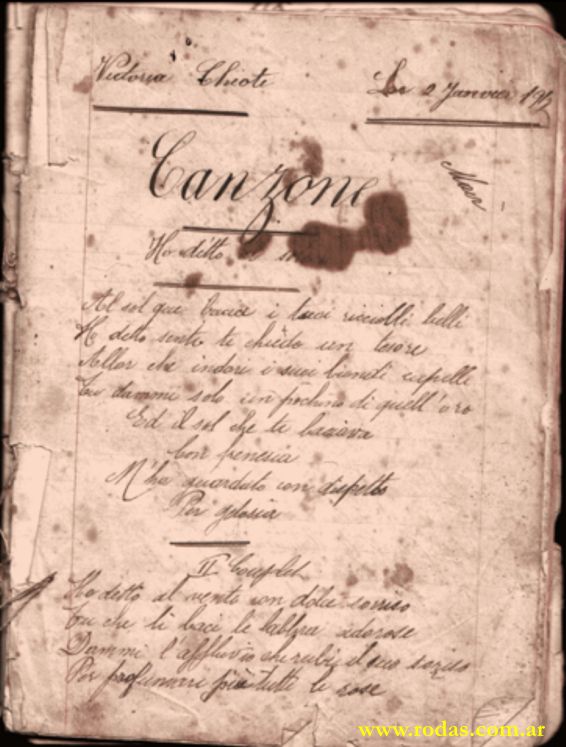 Victoria Chioti
Le 2 Janvier 19
Canzone
Ho detto
Al sol que bacia i tuoi riccioli belli
H detto senti te chiedo un tesore
Allor che indori i suoi biondi capelli
Tu dammi solo un pochino di quell'oro
Ed il sol che te baciava
Con
M'ha guardato con dispetto
Per gelosia
II Couplet
Ho detto al vento con dolce sorriso
Tu che li baci le labbra odorose
Dammi l'affluvio che rubi al suo sorriso
Per profumare poi tutte le rose
www.rodas.com.ar